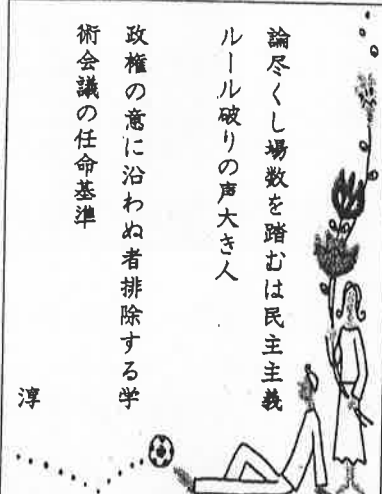 論尽くし場数を踏むは民主主義
ルール破りの声大き人
政権の意に沿わぬ者排除する学
術会議の任命基準
淳